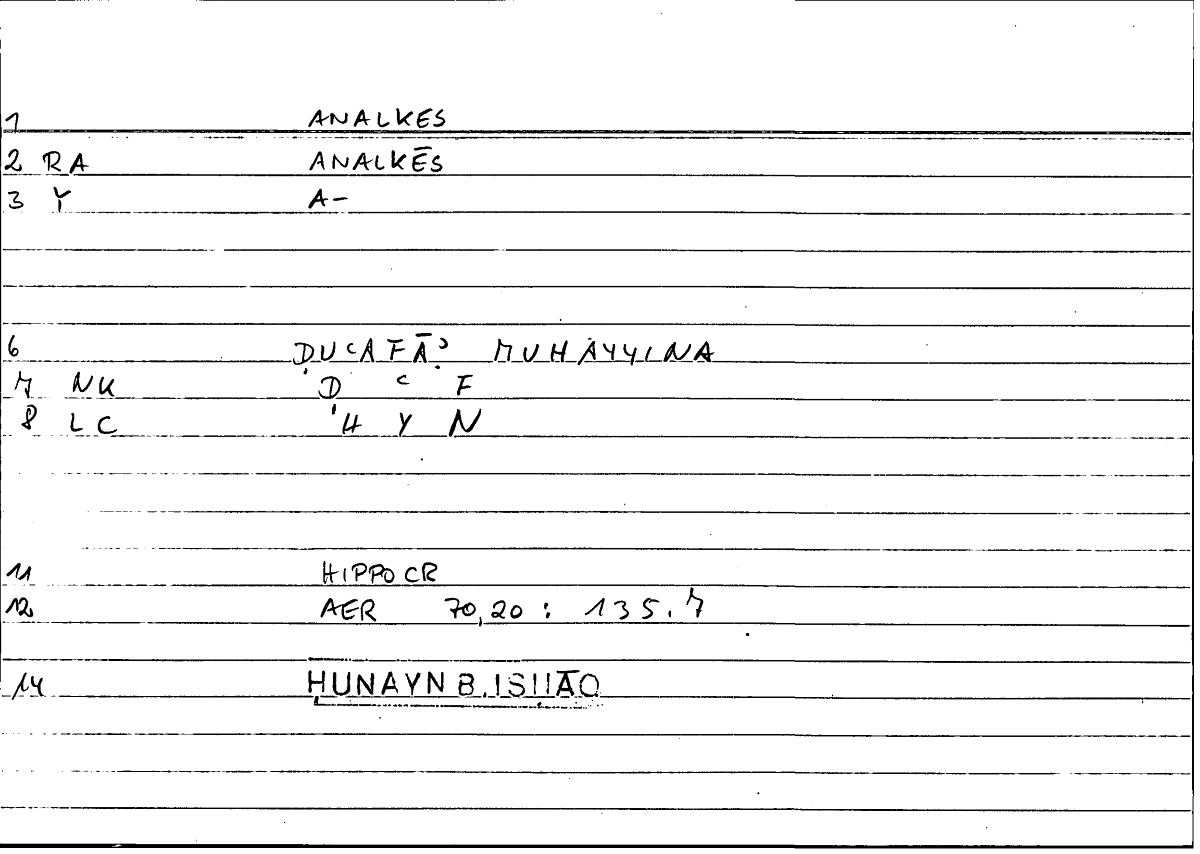 1 ANALKES
2 RA ANALKĒS
3 Y A-
6 ḌUʿAFĀʾ MUHAYYINA
7 NK Ḍ ʿ F
8 LC H Y N
11 HIPPOCR
12 AER 70,20 : 135.7
14 ḤUNAYN B. ISḤĀQ